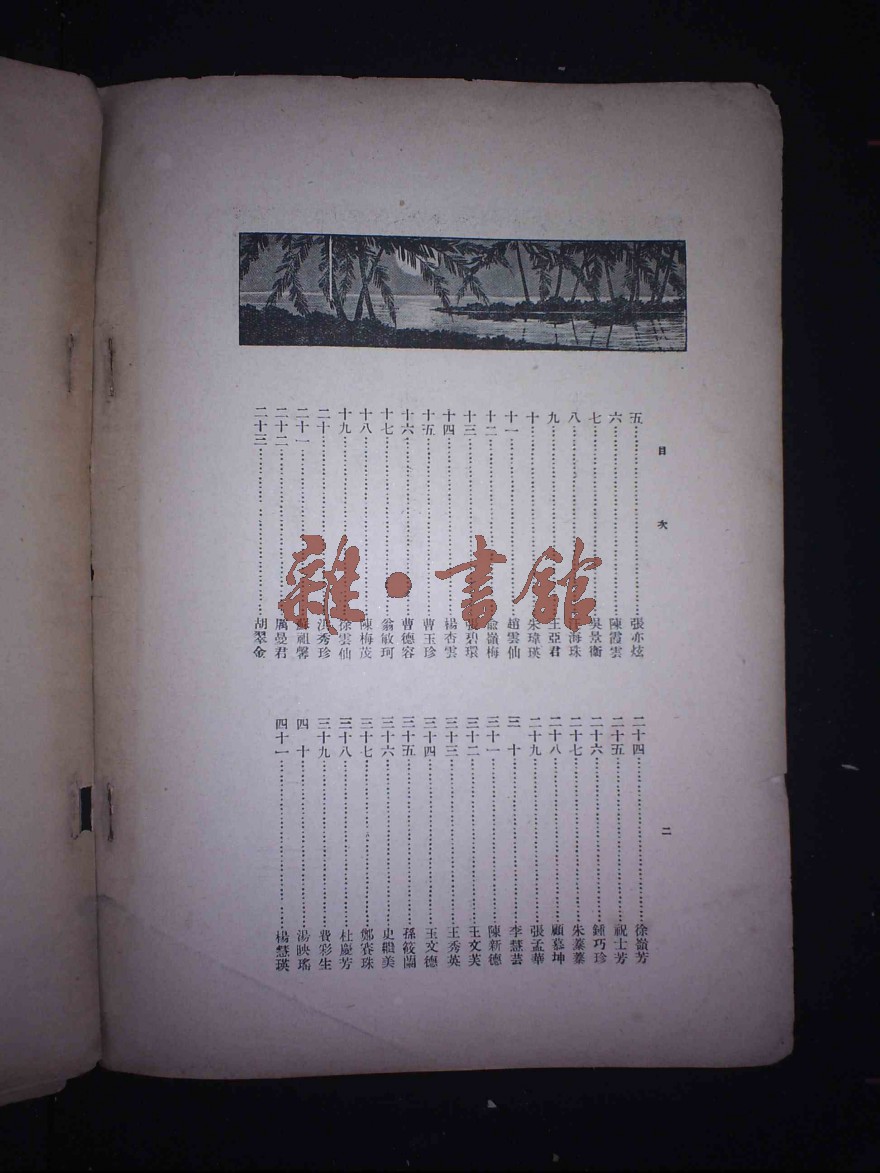 目次
二
五 張亦炫
六 陳霞雲
七 吳景衡
八 海珠
九 王亞君
十 朱瑋瑛
十一 趙雲仙
十二 俞嶺梅
十三 張碧環
十四 楊杏雲
十五 曹玉珍
十六 曹德容
十七 翁敏珂
十八 陳梅茂
十九 徐雲仙
二十 洪秀珍
二十一 蘇祖馨
二十二 厲曼君
二十三 胡翠金
二十四 徐嶺芳
二十五 祝士芳
二十六 鍾巧珍
二十七 朱蓁蓁
二十八 顧慕坤
二十九 張孟華
三十 李慧芸
三十一 陳新德
三十二 王文英
三十三 王秀英
三十四 王文德
三十五 孫筱蘭
三十六 史縜美
三十七 鄭賽珠
三十八 杜慶芳
三十九 費彩生
四十 湯映瑤
四十一 楊慧瑛
雜·書館